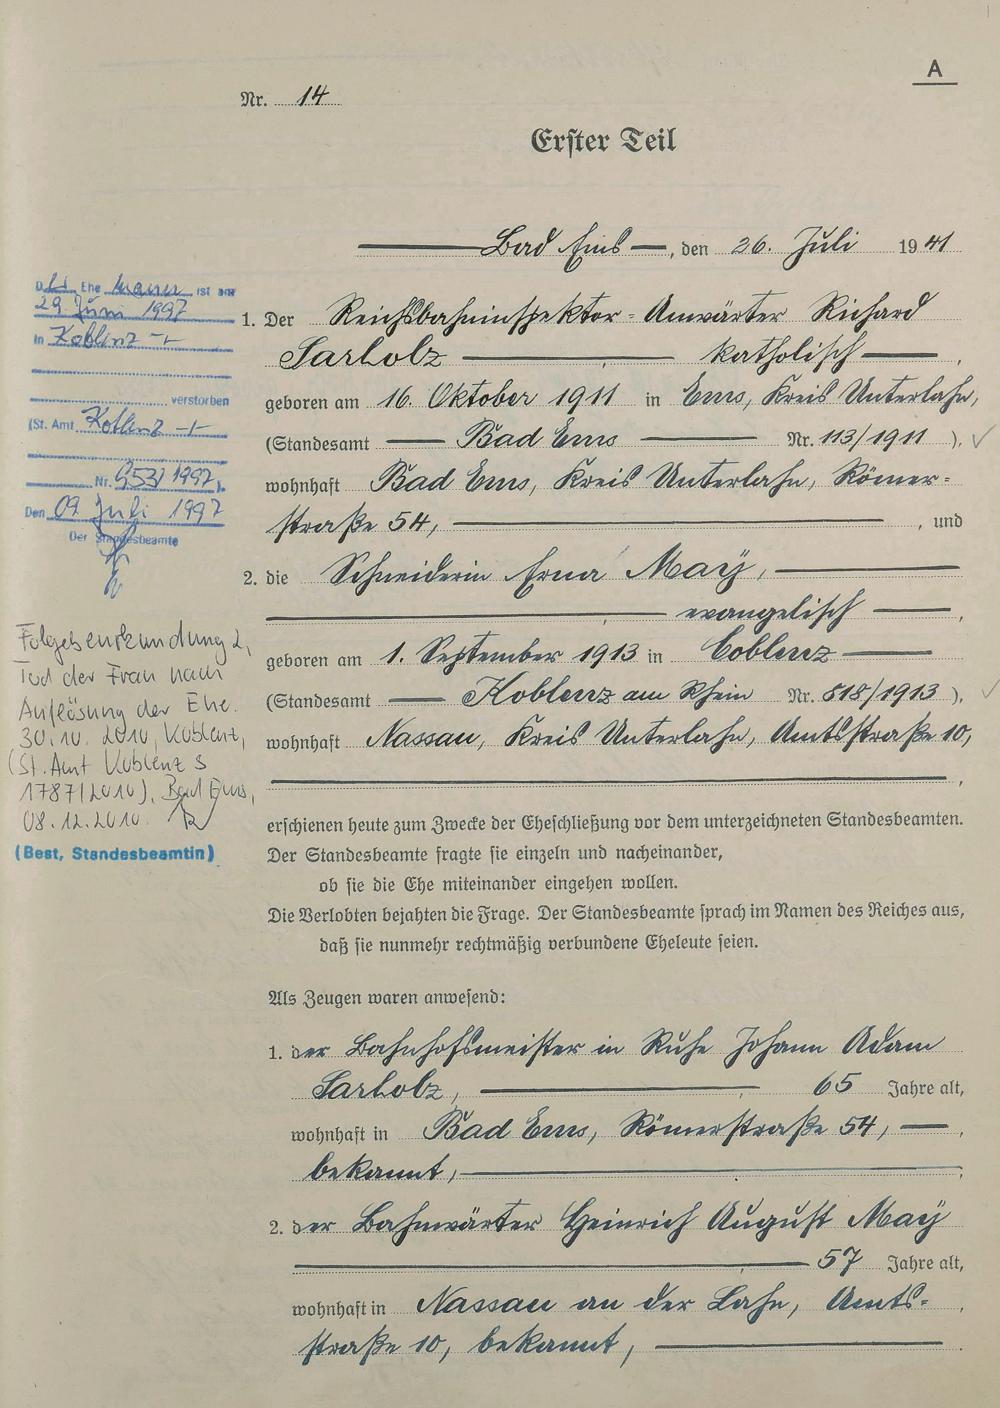 A
Nr. 14
Erster Teil
Bad Ems, den 26. Juli 1941
1. Der Reichsbahninspektor-Anwärter Richard
Sarholz katholisch,
geboren am 16. Oktober 1911 in Ems, Kreis Unterlahn,
(Standesamt Bad Ems Nr. 113/1911),
wohnhaft Bad Ems, Kreis Unterlahn, Römer-
straße 54, , und
2. die Schneiderin Erna Maÿ,
evangelisch,
geboren am 1. September 1913 in Coblenz
(Standesamt Koblenz am Rhein Nr. 818/1913),
wohnhaft Nassau, Kreis Unterlahn, Amtsstraße 10,
,
erschienen heute zum Zwecke der Eheschließung vor dem unterzeichneten Standesbeamten.
Der Standesbeamte fragte sie einzeln und nacheinander,
ob sie die Ehe miteinander eingehen wollen.
Die Verlobten bejahten die Frage. Der Standesbeamte sprach im Namen des Reiches aus,
daß sie nunmehr rechtmäßig verbundene Eheleute seien.
Als Zeugen waren anwesend:
1. der Bahnhofsmeister in Ruhe Johann Adam
Sarholz, 65 Jahre alt,
wohnhaft in Bad Ems, Römerstraße 54, ,
bekannt, ;
2. der Bahnwärter Heinrich August Maÿ
57 Jahre alt,
wohnhaft in Nassau an der Lahn, Amts-
straße 10, bekannt,
Der Ehemann ist am
29 Juni 1997
in Koblenz
verstorben
(St. Amt Koblenz
Nr. 953/1997).
Den 09 Juli 1997
Der Standesbeamte
Folgebeurkundung 2,
Tod der Frau nach
Auflösung der Ehe.
30.10.2010, Koblenz,
(St. Amt Koblenz S
1787/2010), Bad Ems,
08.12.2010.
(Best, Standesbeamtin)